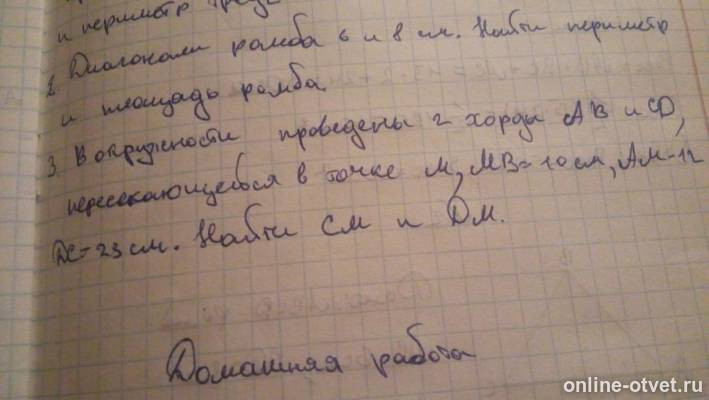 и периметр
2. Диагонали ромба 6 и 8 см. Найти периметр
и площадь ромба
3. В окружности проведены 2 хорды АВ и СD,
пересекающиеся в точке М, МВ=10 см, АМ-12
DC=23 см. Найти СМ и DМ.
Домашняя работа
online-otvet.ru